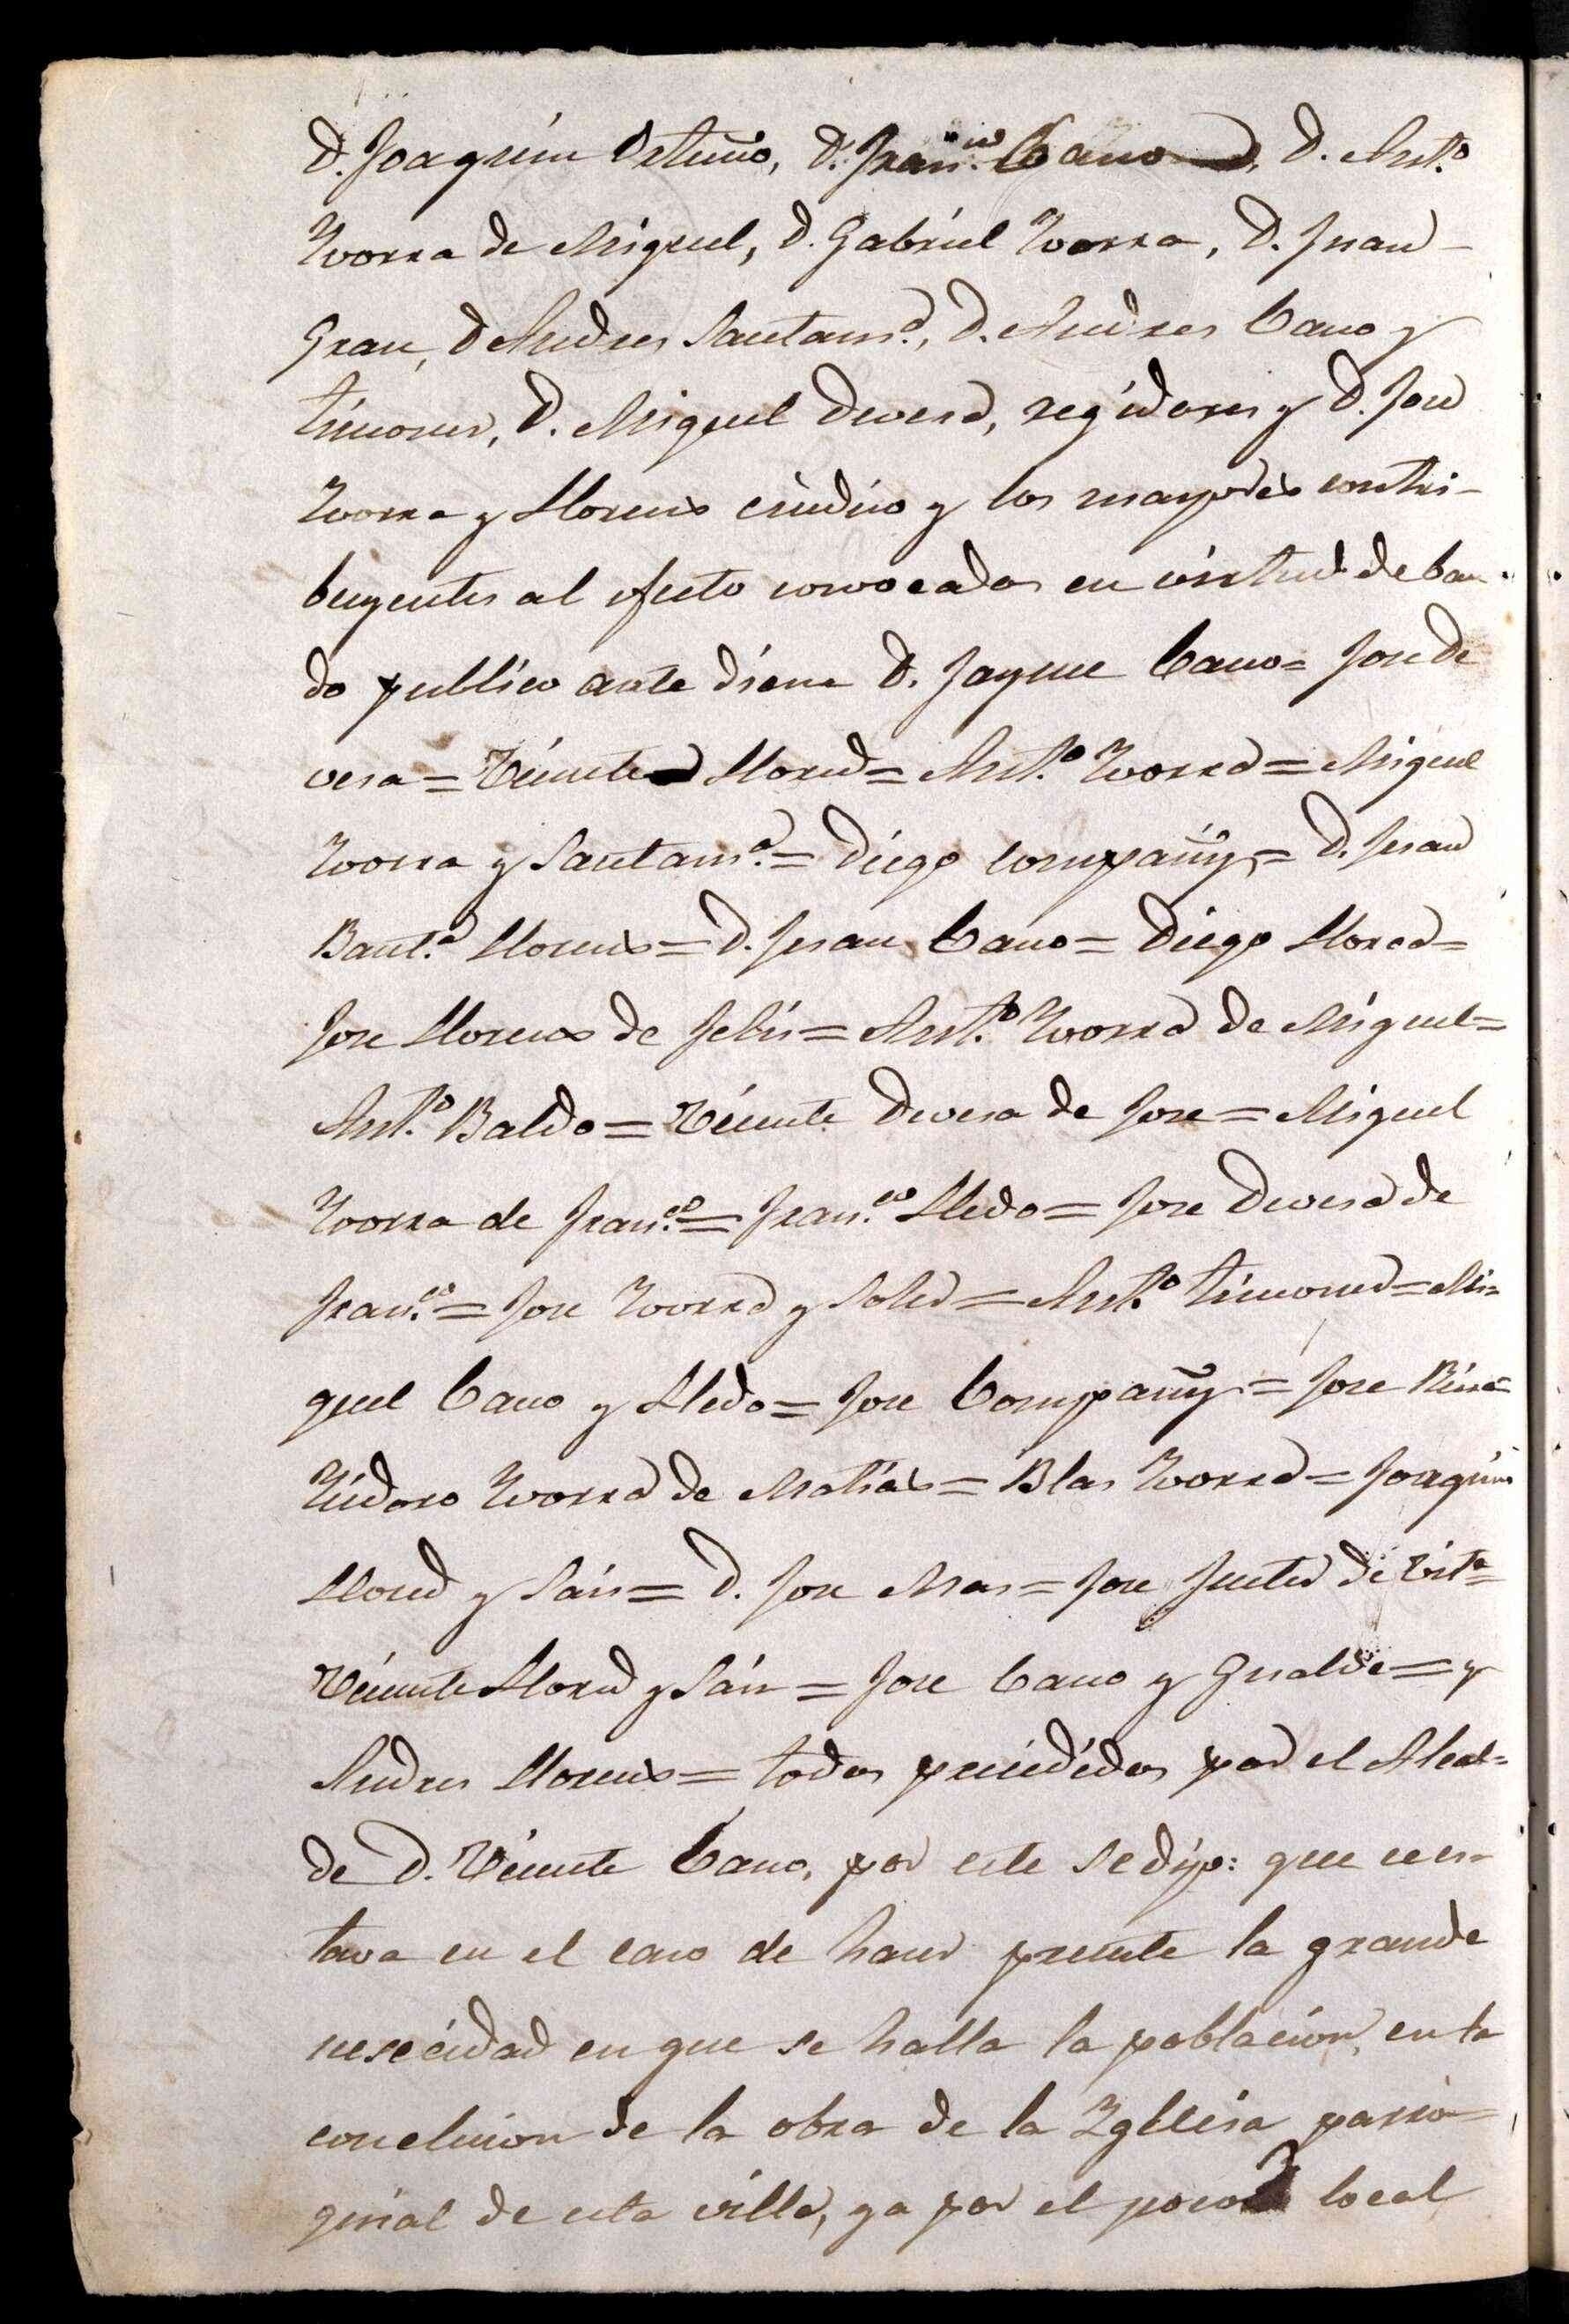 D. Joaquin Ortuño, D. Fran.co Cano, D. Ant.o
Yvorra de Miguel, D. Gabriel Yvorra, D. Juan
Grau, D Andres Santam.a, D. Andres Cano y
timoner, D. Miguel Devesa, regidores y D. Jose
Yvorra y Llorens cindico y los mayores contri-
buyentes al efecto convocados en virtud de ban-
do publico ante diem D. Jayme Cano= Jose de
vesa= Vicente Lloret= Ant.o Yvorra= Miguel
Yvorra y Santam.a= Diego Compañy= D. Juan
Baut.a Llorens= D. Juan Cano= Diego Lloret=
Jose Llorens de Felis= Ant.o Yvorra de Miguel=
Ant.o Baldo= Vicente Devesa de Jose= Miguel
Yvorra de Fran.co= Fran.co Lledo= Jose Devesa de
Fran.co= Jose Yvorra y Soler= Ant.o timoner= Mi=
guel Cano y Lledo= Jose Compañy= Jose
Ysidoro Yvorra de Matias= Blas Yvorra= Joaquin
Lloret y Sais= D. Jose Mas= Jose Fuster de Vis.te=
Vicente Lloret y Sais= Jose Cano y Gualde= y
Andres Llorens= todos precedidos por el Alcal=
de D. Vicente Cano, por este se dijo: que se es-
tava en el caso de hacer presente la grande
nesecidad en que se halla la poblacion, en la
conclucion de la obra de la Yglecia parro=
quial de esta villa, ya por el poco local